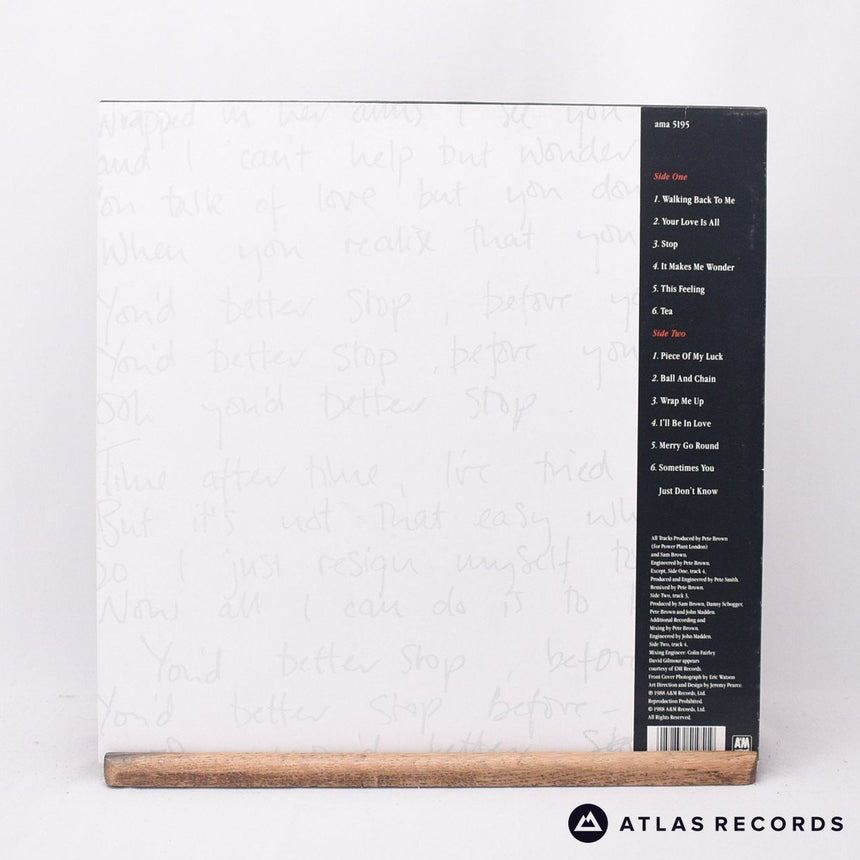 Wrapped in her arms I see you
and I can't help but wonder
On talk of love but you don
When you realise that you
You'd better stop, before yo
You'd better stop, before you
Ooh you'd better stop.
Time after time, I've tried
But it's not that easy wh
So I just resign myself to
Now all I can do is to
You'd better stop, before
You'd better stop before
ama 5195
Side One
1. Walking Back To Me
2. Your Love Is All
3. Stop
4. It Makes Me Wonder
5. This Feeling
6. Tea
Side Two
1. Piece Of My Luck
2. Ball And Chain
3. Wrap Me Up
4. I'll Be In Love
5. Merry Go Round
6. Sometimes You
Just Don't Know
All Tracks Produced by Pete Brown
(for Power Plant London)
and Sam Brown.
Engineered by Pete Brown.
Except, Side One, track 4,
Produced and Engineered by Pete Smith.
Remixed by Pete Brown.
Side Two, track 3,
Produced by Sam Brown, Danny Schogger,
Pete Brown and John Madden.
Additional Recording and
Mixing by Pete Brown.
Engineered by John Madden.
Side Two, track 4.
Mixing Engineer: Colin Fairley
David Gilmour appears
courtesy of EMI Records.
Front Cover Photograph by Eric Watson
Art Direction and Design by Jeremy Pearce.
℗ 1988 A&M Records, Ltd.
Reproduction Prohibited.
© 1988 A&M Records, Ltd.
All Rights Reserved.
A&M
ATLAS RECORDS